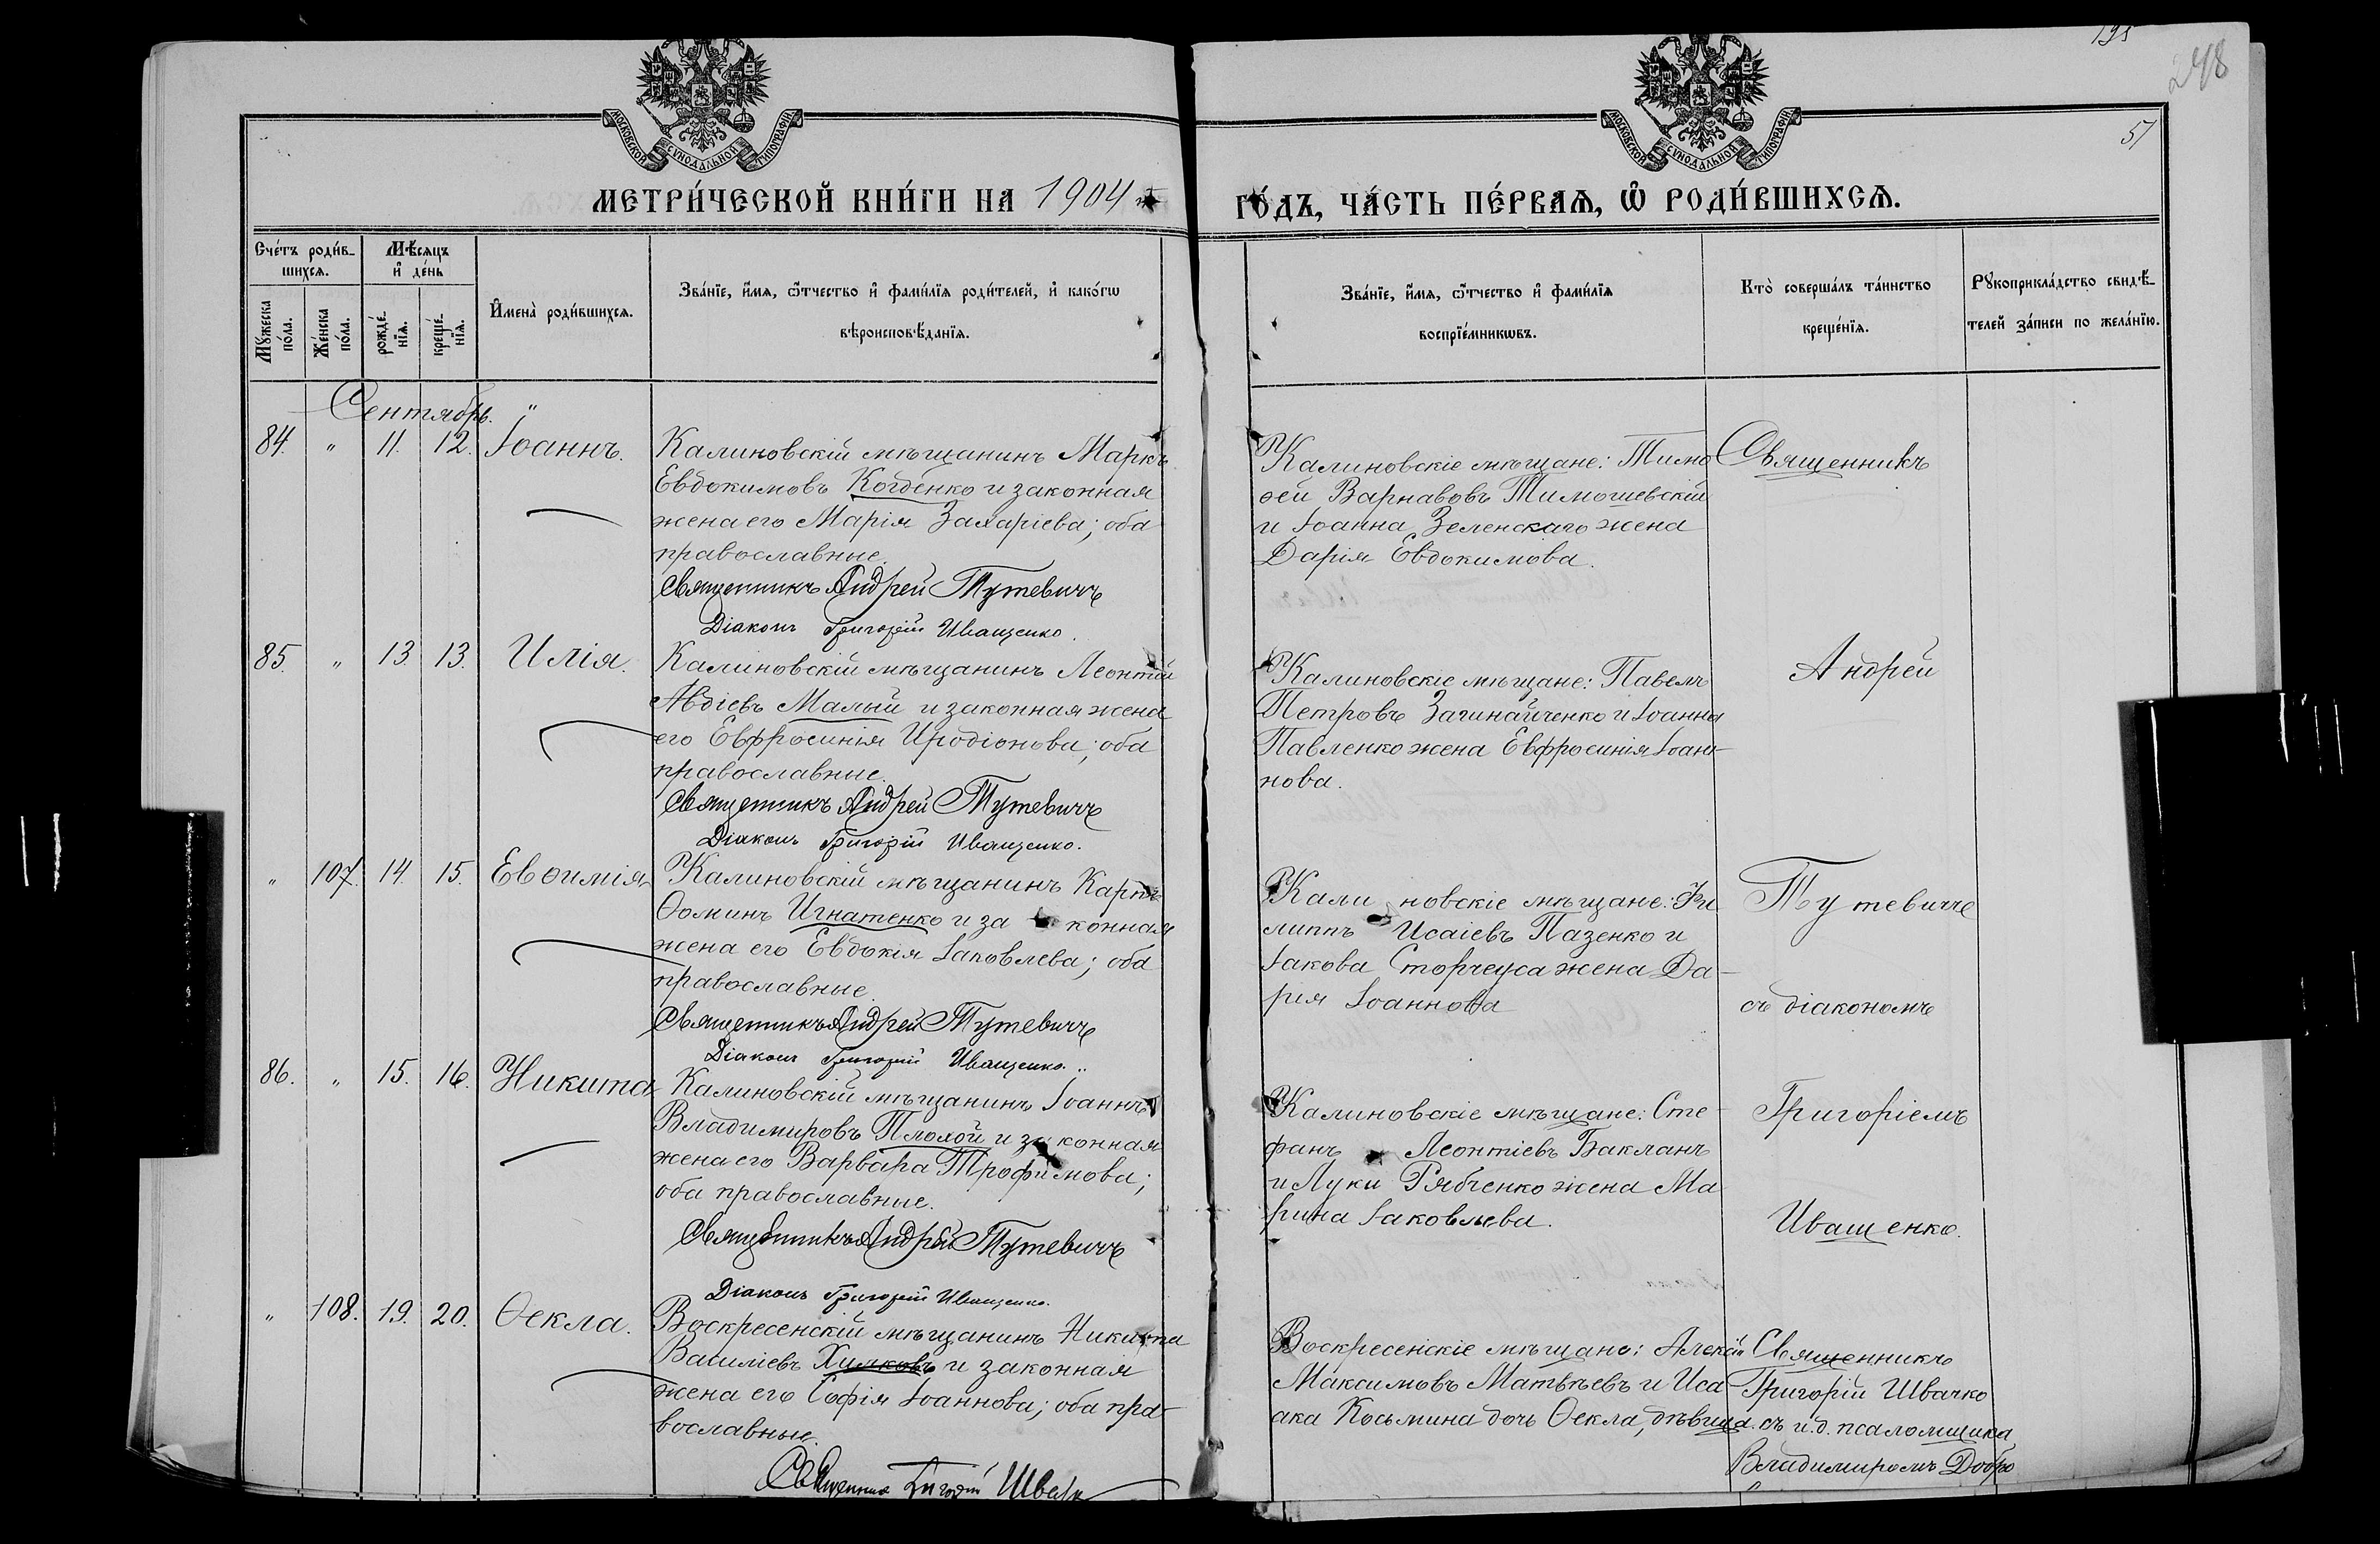 195
248
51
МОСКОВСКОЙ СУНОДАЛЬНОЙ ТИПОГРАФІИ
МОСКОВСКОЙ СУНОДАЛЬНОЙ ТИПОГРАФІИ
МЕТРИ́ЧЕСКОЙ КНИ́ГИ НА 1904
ГО́ДЪ, ЧА́СТЬ ПЕ́РВАѦ, Ѡ҆ РОДИ́ВШИХСѦ.
Сче́тъ роди́в-
шихсѧ.
Мѣ́сѧцъ
и҆ де́нь
Мꙋ́жеска
по́ла.
Же́нска
по́ла.
рожде́-
нїѧ.
креще́-
нїѧ.
И҆мена̀ роди́вшихсѧ.
Зва́нїе, и҆́мѧ, ѻ҆́тчество и҆ фами́лїѧ роди́телей, и҆ како́гѡ
вѣроисповѣ́данїѧ.
Зва́нїе, и҆́мѧ, ѻ҆́тчество и҆ фами́лїѧ
воспрїе́мникѡвъ.
Кто̀ соверша́лъ та́инство
креще́нїѧ.
Рꙋкоприкла́дство свидѣ́-
телей за́писи по жела́нїю.
Сентябрь. "
84. " 11. 12. Іоаннъ.
Калиновскій мѣщанинъ Маркъ
Евдокимовъ Когденко и законная
жена его Марія Захаріева; оба
православные.
Священникъ Андрей Тутевичъ
Діаконъ Григорій Иващенко.
Калиновскіе мѣщане: Тимо
ѳей Варнавовъ Тимошевскій
и Іоанна Зеленскаго жена
Дарія Евдокимова.
Священникъ
85. " 13. 13. Илія.
Калиновскій мѣщанинъ Леонтій
Авдіевъ Малый и законная жена
его Евфросинія Иродіонова; оба
православные.
Священникъ Андрей Тутевичъ
Діаконъ Григорій Иващенко.
Калиновскіе мѣщане: Павелъ
Петровъ Загинайченко и Іоанна
Павленко жена Евфросинія Іоан-
нова.
Андрей
" 107. 14. 15. Евѳимія
Калиновскій мѣщанинъ Карпъ
Ѳоминъ Игнатенко и за конная
жена его Евдокія Іаковлева; оба
православные.
Священникъ Андрей Тутевичъ
Діаконъ Григорій Иващенко.
Кали новскіе мѣщане: Фи
липпъ Исаіевъ Пазенко и
Іакова Сторчеуса жена Да-
рія Іоаннова
Тутевичъ
съ діакономъ
86. " 15. 16. Никита
Калиновскій мѣщанинъ Іоаннъ
Владимировъ Плохой и законная
жена его Варвара Трофимова;
оба православные.
Священникъ Андрей Тутевичъ
Діаконъ Григорій Иващенко.
Калиновскіе мѣщане: Сте-
фанъ Леонтіевъ Бакланъ
и Луки Рябченко жена Ма
рина Іаковлева.
Григоріемъ
Иващенко.
" 108. 19. 20. Ѳекла.
Воскресенскій мѣщанинъ Никита
Василіевъ Химковъ и законная
жена его Софія Іоаннова; оба пра-
вославные.
Священникъ Григорій Швачк
Воскресенскіе мѣщане: Алексій
Максимовъ Матвѣевъ и Иса-
ака Косьмина дочь Ѳекла, дѣвица.
Священникъ
Григорій Швачко
съ и.д. псаломщика
Владимиромъ Добро